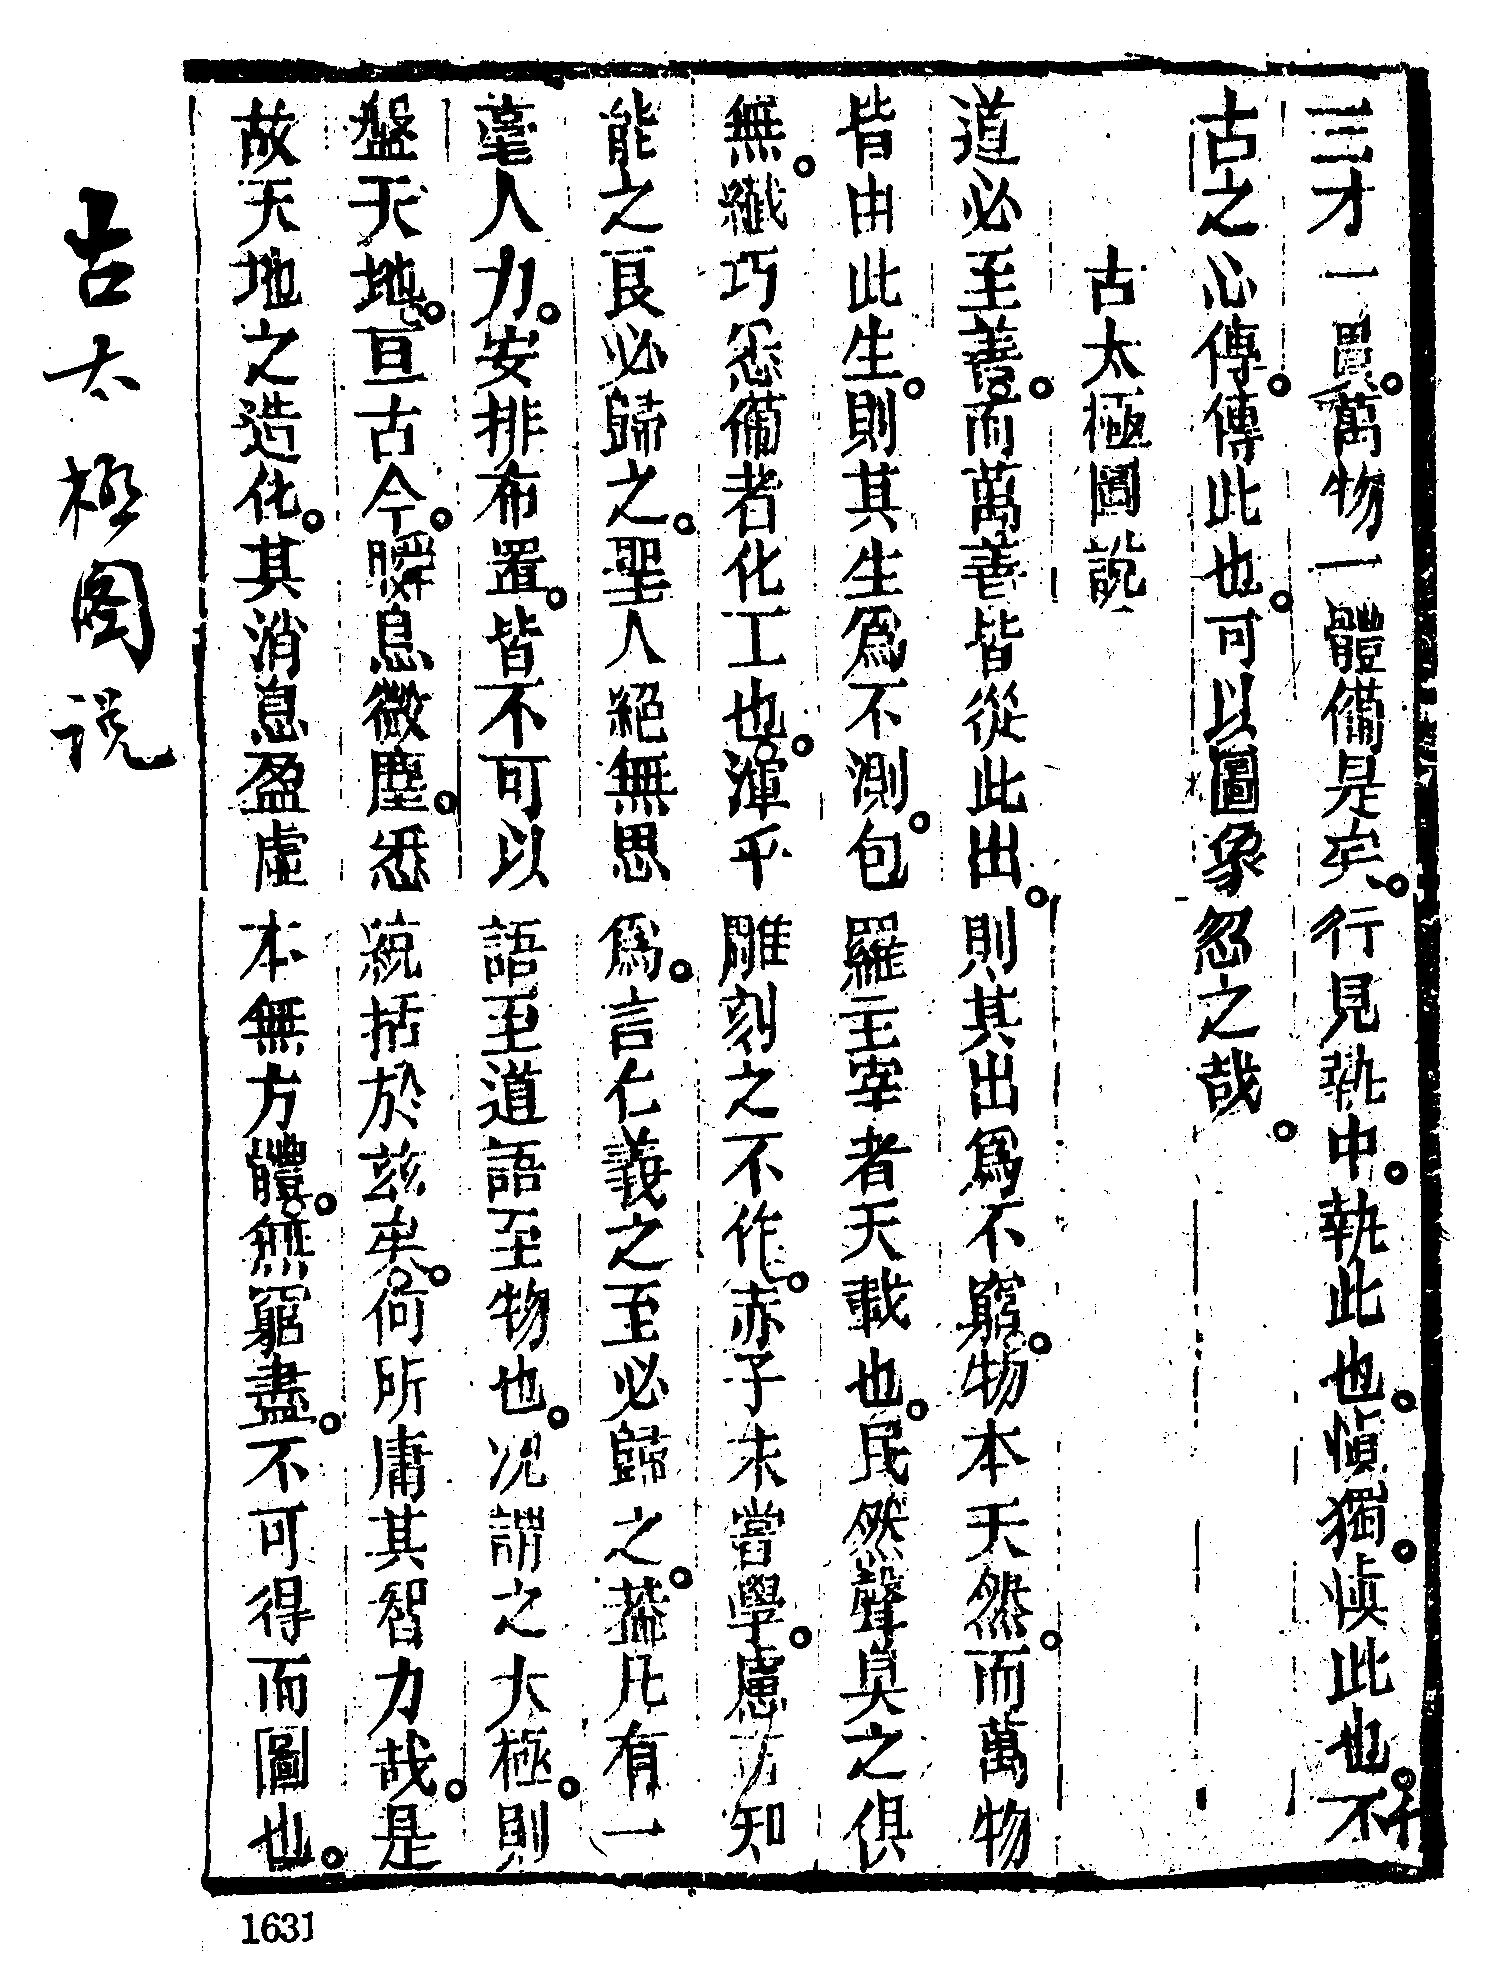 三才一貫萬物一體備是矣行見執中執此也慎獨慎此也不
古之心傳傳此也可以圖象忽之哉
古太極圖說
道必至善而萬善皆從此出則其出爲不窮物本天然而萬物
皆由此生則其生爲不測包羅主宰者天載也民然聲臭之俱
無纖巧悉備者化工也渾乎雕刻之不作赤子未嘗學慮知
能之良必歸之聖人絕無思爲言仁義之至必歸之葢凡有一
毫人力安排布置皆不可以語至道語至物也况謂之大極則
盤天地亘古今瞬息微塵悉統括於兹矣何所庸其智力哉是
故天地之造化其消息盈虛本無方體無窮盡不可得而圖也
古太极图说
1631